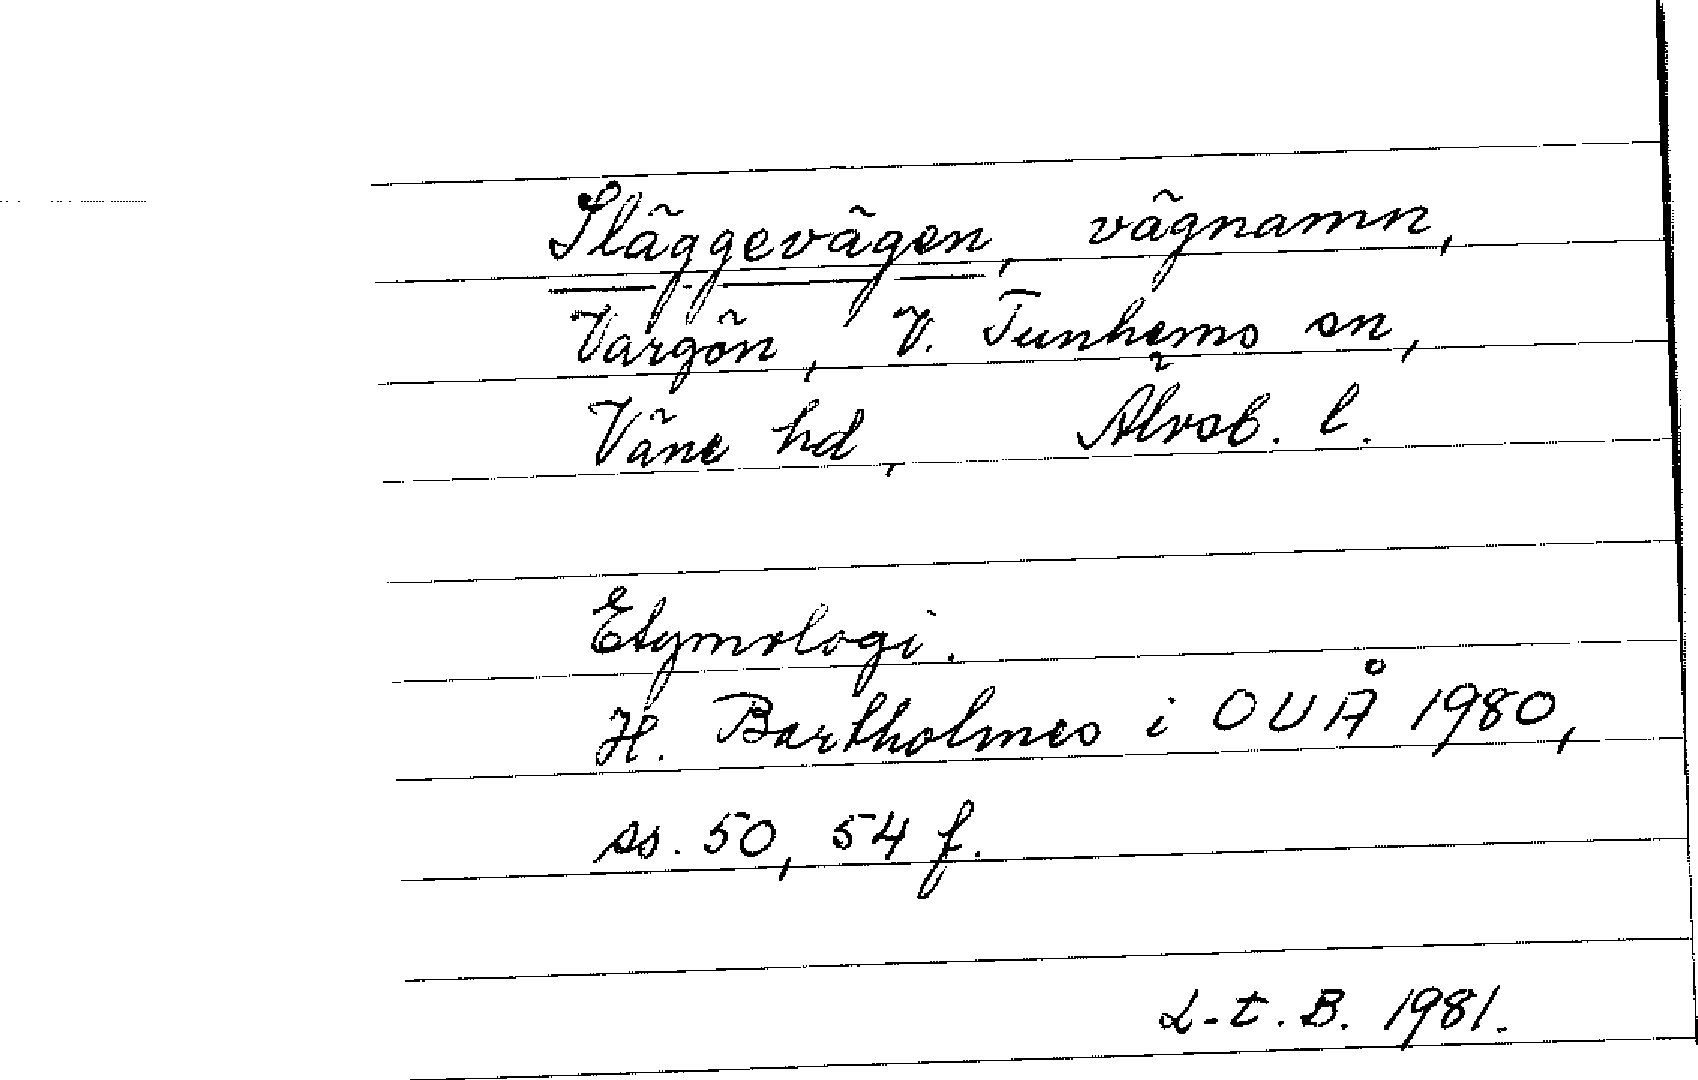 Släggevägen, vägnamn,
Vargön, V. Tunhems sn,
Väne hd, Älvsb. l.
Etymologi.
H. Bartholmes i OUÅ 1980,
ss. 50, 54 f.
L-t. B. 1981.